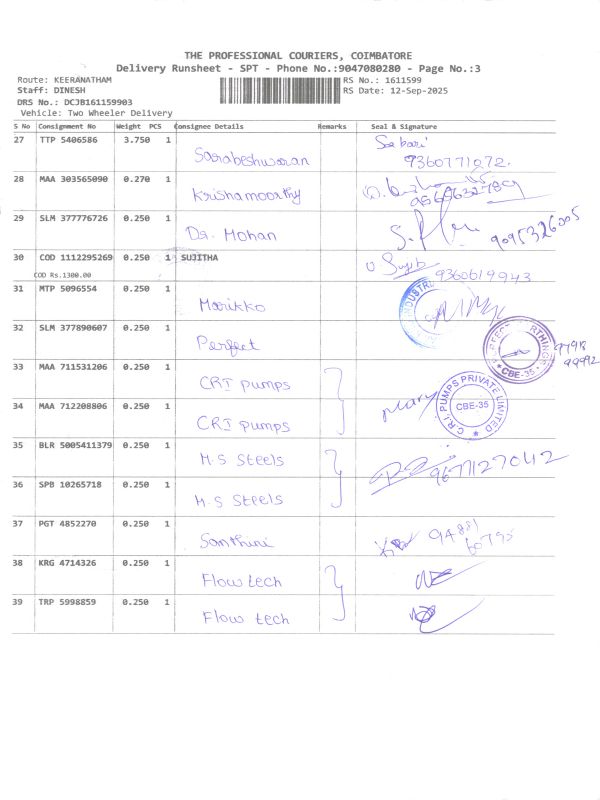 THE PROFESSIONAL COURIERS, COIMBATORE
Delivery Runsheet - SPT - Phone No.:9047080280 - Page No.:3
Route: KEERANATHAM RS No.: 1611599
Staff: DINESH RS Date: 12-Sep-2025
DRS No.: DCJB161159903
Vehicle: Two Wheeler Delivery
S No Consignment No Weight PCS Consignee Details Remarks Seal & Signature
27 TTP 5406586 3.750 1 Sarabeshwaran Sabari
9360771072
28 MAA 303565090 0.270 1 Krishamoorthy
29 SLM 377776726 0.250 1 Dr. Mohan 9095326005
30 COD 1112295269 0.250 1 SUJITHA 9360619943
COD Rs.1300.00
31 MTP 5096554 0.250 1 Marikko
32 SLM 377890607 0.250 1 Perfect
CBE-35
33 MAA 711531206 0.250 1 CRI pumps
34 MAA 712208806 0.250 1 CRI pumps
C.R.I. PUMPS PRIVATE LIMITED
CBE-35
35 BLR 5005411379 0.250 1 M.S Steels
9677127042
36 SPB 10265718 0.250 1 M.S Steels
37 PGT 4852270 0.250 1 Santhini 94881
60795
38 KRG 4714326 0.250 1 Flow tech
39 TRP 5998859 0.250 1 Flow tech